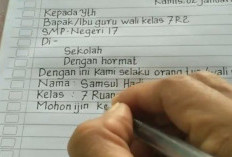 Kamis, 02 januar
Kepada Yth
Bapak/Ibu guru wali kelas 7R2
SMP. Negeri 17
Di -
Sekolah
Dengan hormat
Dengan ini kami selaku orang tua/wali
Nama : Samsul Hadi
Kelas : 7 Ruan
Mohon ijin Ke